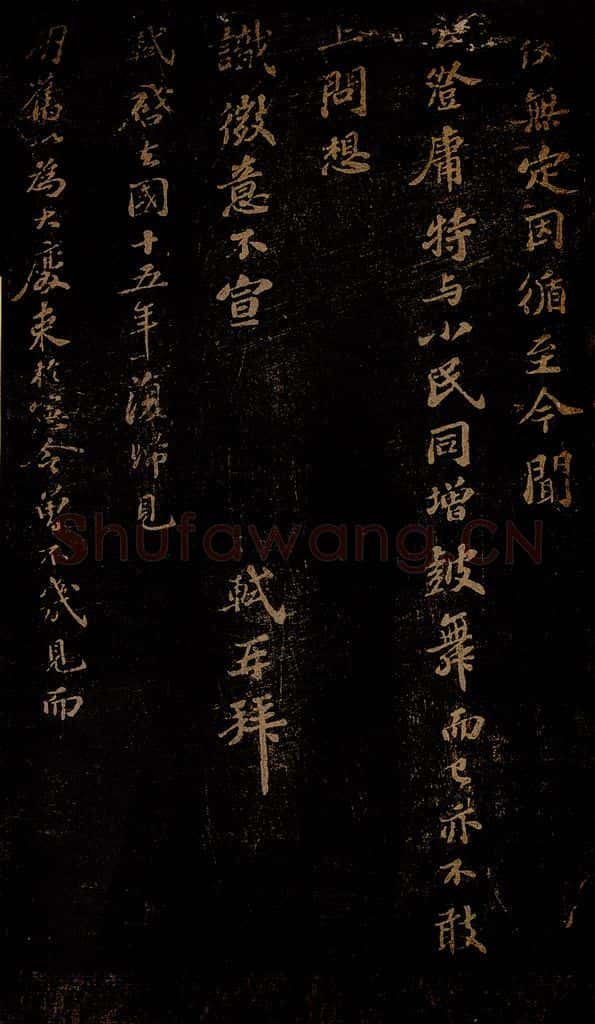 役無定因循至今聞
公登庸特与小民同增鼓舞而已亦不敢
上問想
識微意不宣 軾再拜
軾啓去國十五年復歸見
用舊以為大慶束於憲令曾不幾見而
Shufawang.CN